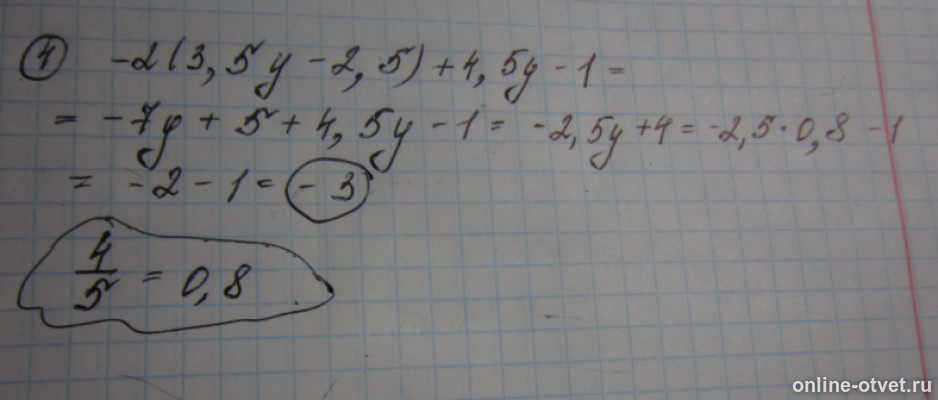 ④ -2(3,5y-2,5)+4,5y-1=
= -7y+5+4,5y-1= -2,5y+4=-2,5·0,8-1
= -2-1= -3
4/5 = 0,8
online-otvet.ru